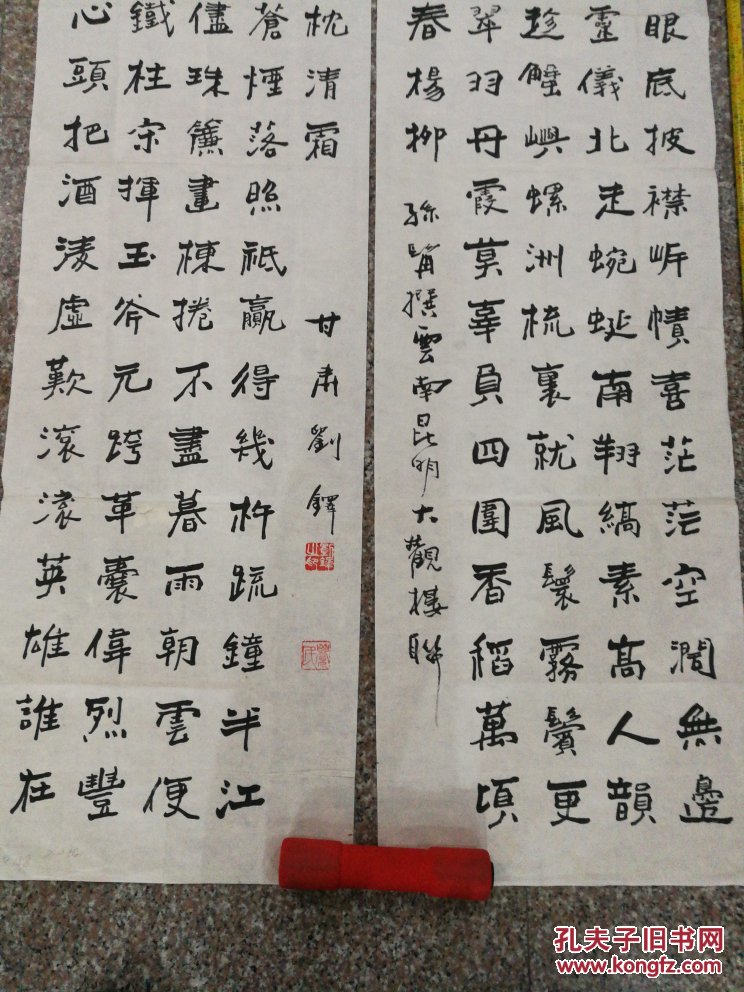 眼底披襟岸幘喜茫茫空闊無邊
靈儀北走蜿蜒南翔縞素高人韻
趁蟹嶼螺洲梳裏就風鬟霧鬢更
翠羽丹霞莫辜負四圍香稻萬頃
春楊柳 孫髯撰雲南昆明大觀樓聯
心頭把酒淩虛歎滾滾英雄誰在
鐵柱宋揮玉斧元跨革囊偉烈豐
儘珠簾畫棟捲不盡暮雨朝雲便
蒼煙落照祇贏得幾杵疏鐘半江
枕清霜
甘肅劉鐸
孔夫子旧书网
www.kongfz.com